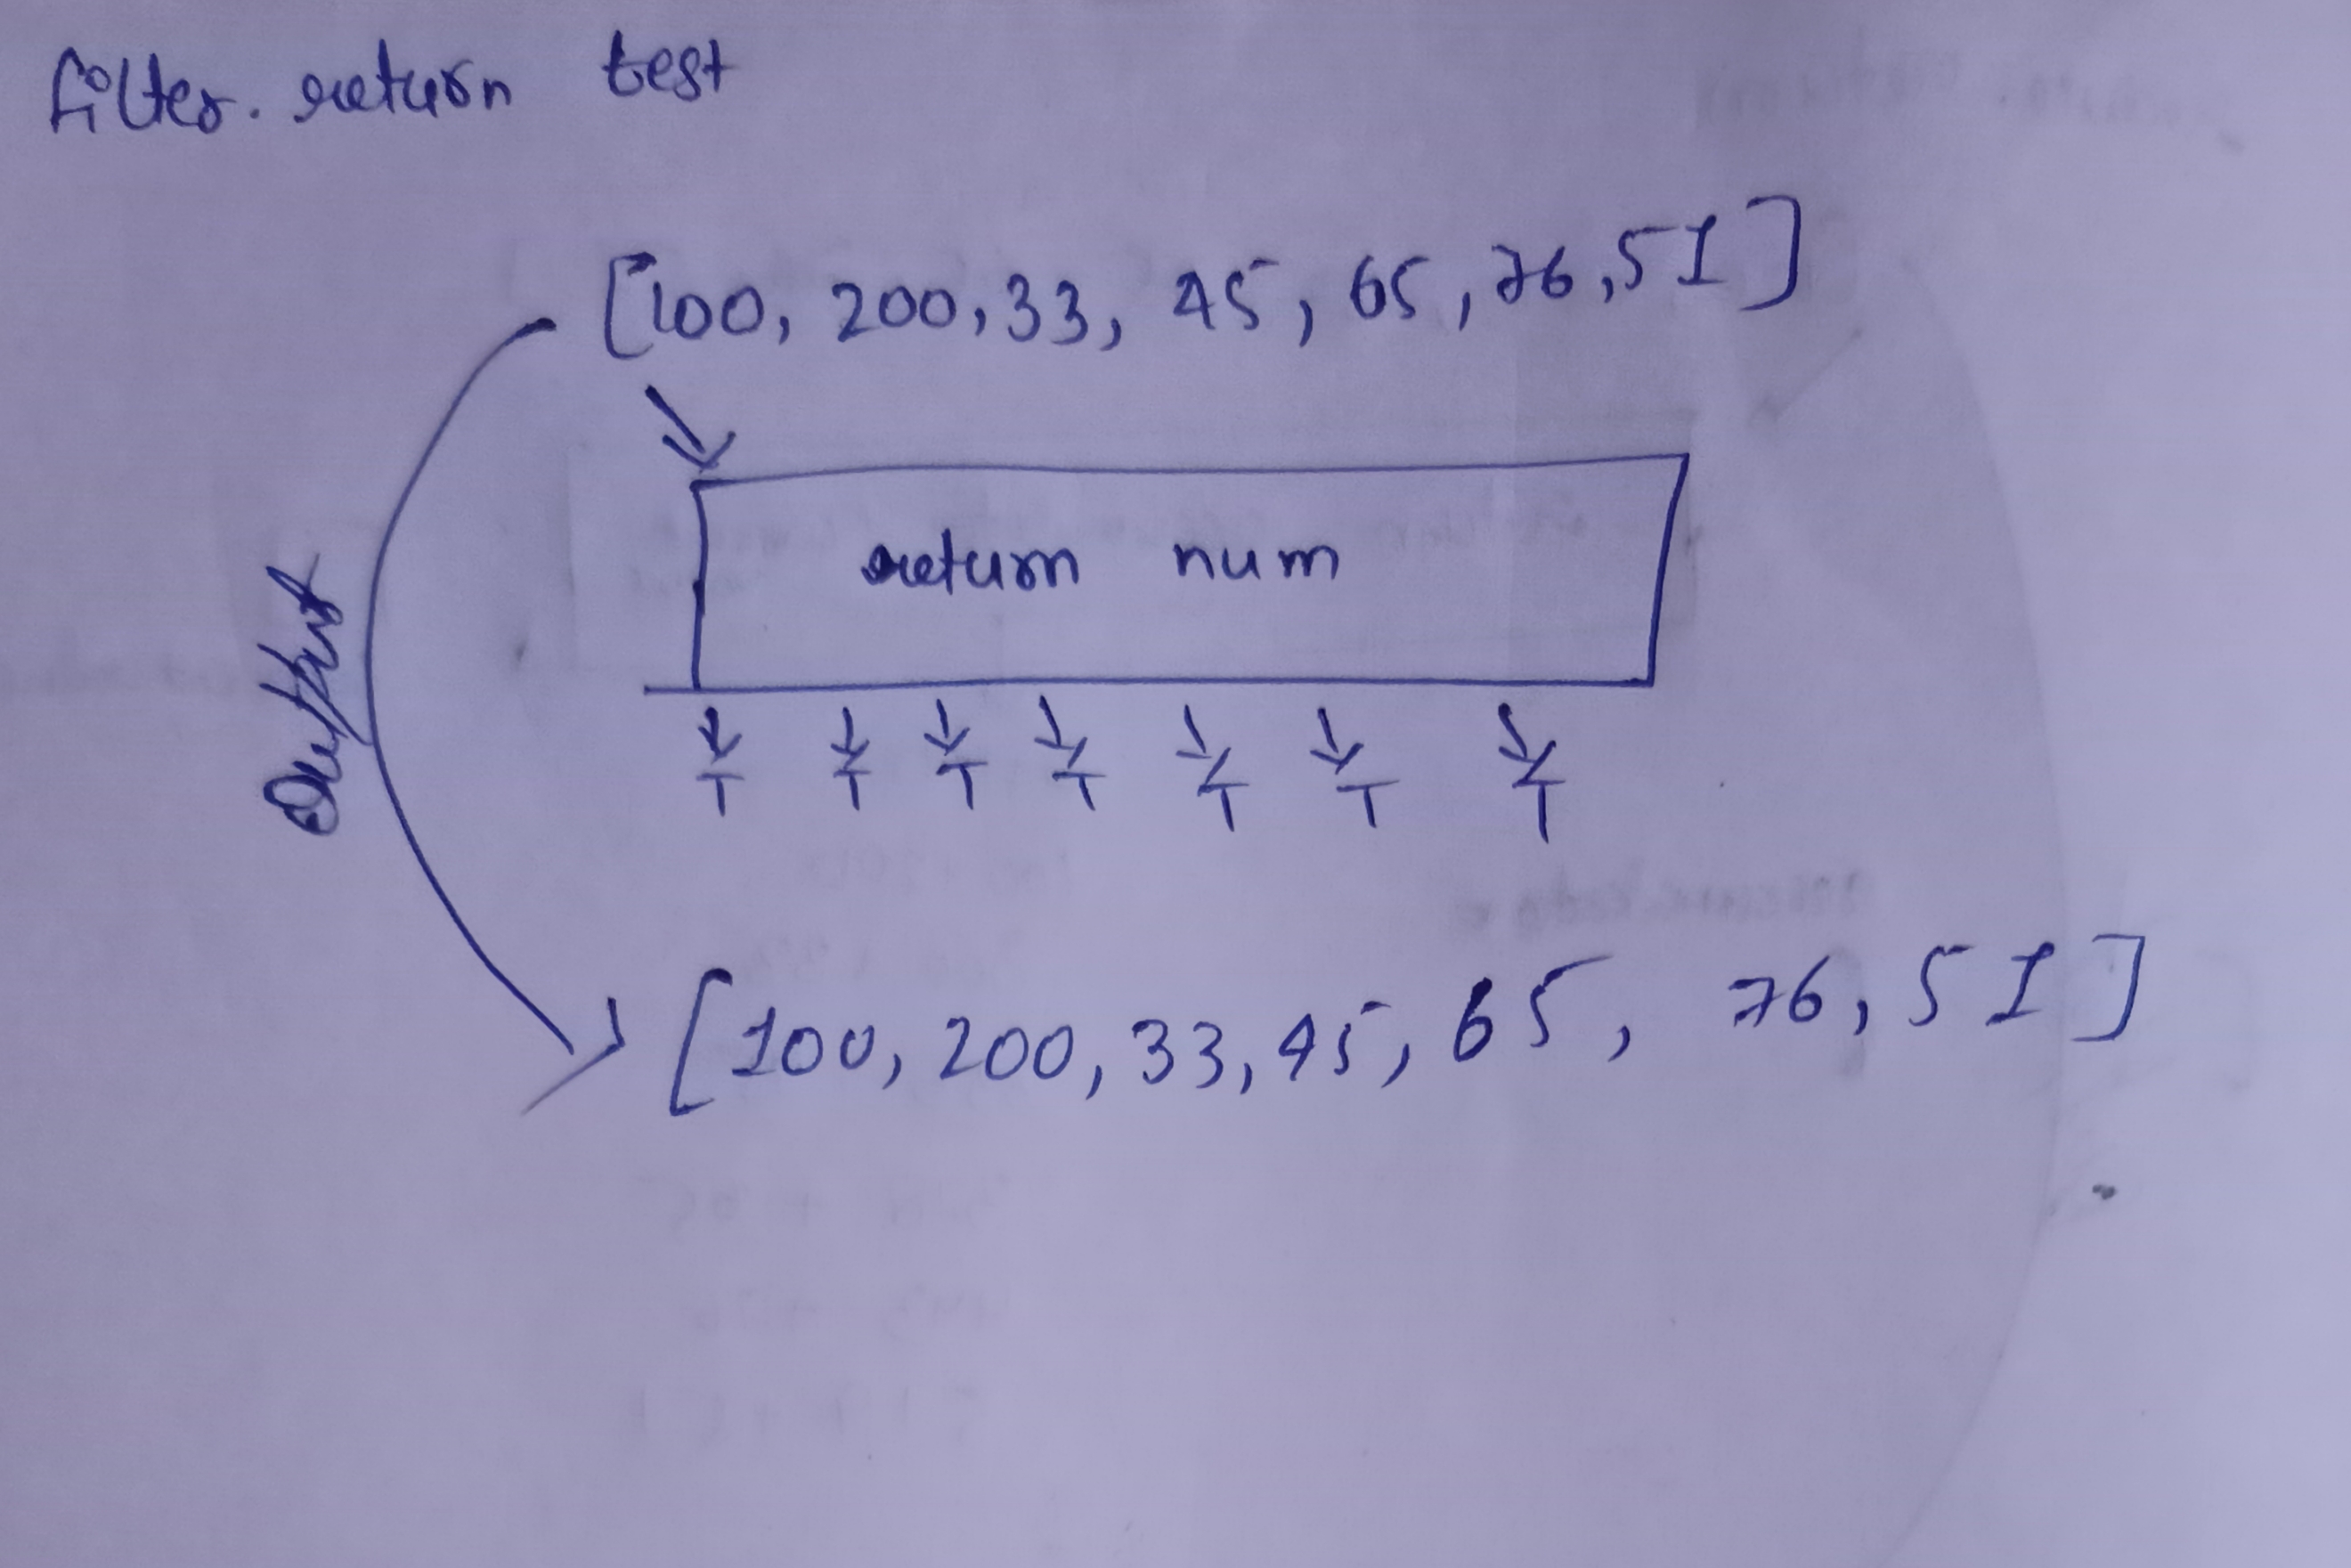 filter. return test
[100, 200, 33, 45, 65, 76, 51]
return num
T T T T T T T
Output
[100, 200, 33, 45, 65, 76, 51]